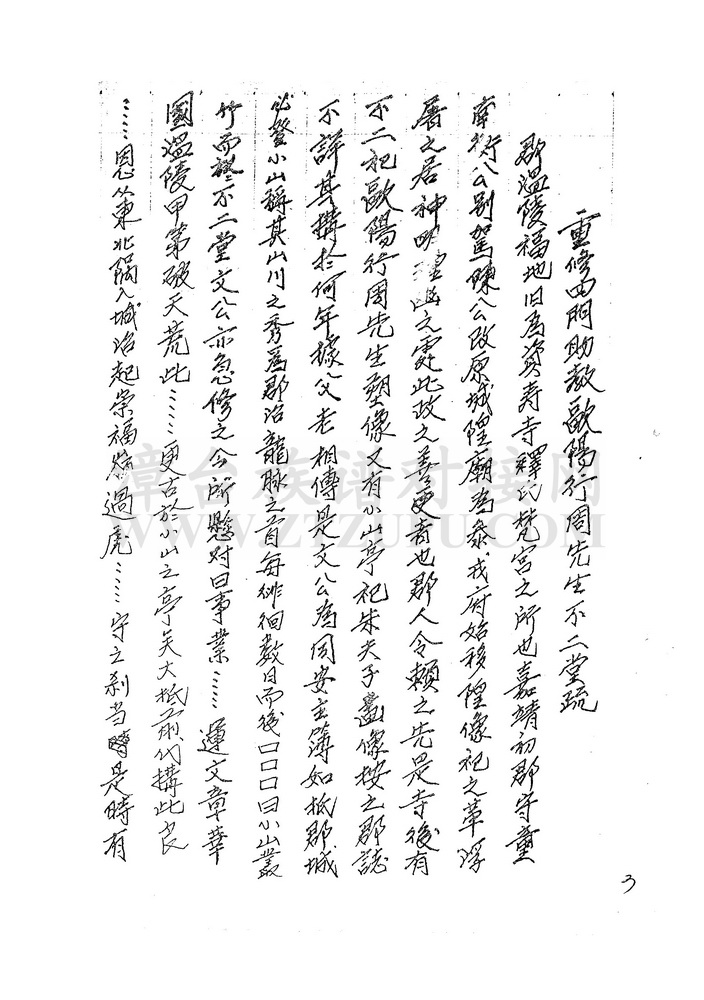 重修四門助教歐陽行周先生不二堂疏
郡溫陵福地旧為資寿寺釋氏梵宮之所也嘉靖初郡守童
南衡公别駕陳公改原城隍廟為叅戎府始移隍像祀之革浮
屠之居神明 幽之灵此政之善更者也郡人令賴之先是寺後有
不二祀歐陽行周先生塑像又有小山亭祀朱夫子畫像按之郡誌
不詳其搆於何年據父老相傳是文公為同安主簿如抵郡城
必登小山稱其山川之秀為郡治龍脉之首每徘徊数日而後口口口曰小山叢
竹而 不二堂文公亦急修之公所懸对曰事業……運文章華
國溫陵甲第破天荒此……更古於小山之亭矣大抵前代搆此良
……恩从東北隅入城治起崇福 過虎……守之刹当時是時有
3
漳台族谱对接网
WWW.ZTZUPU.COM